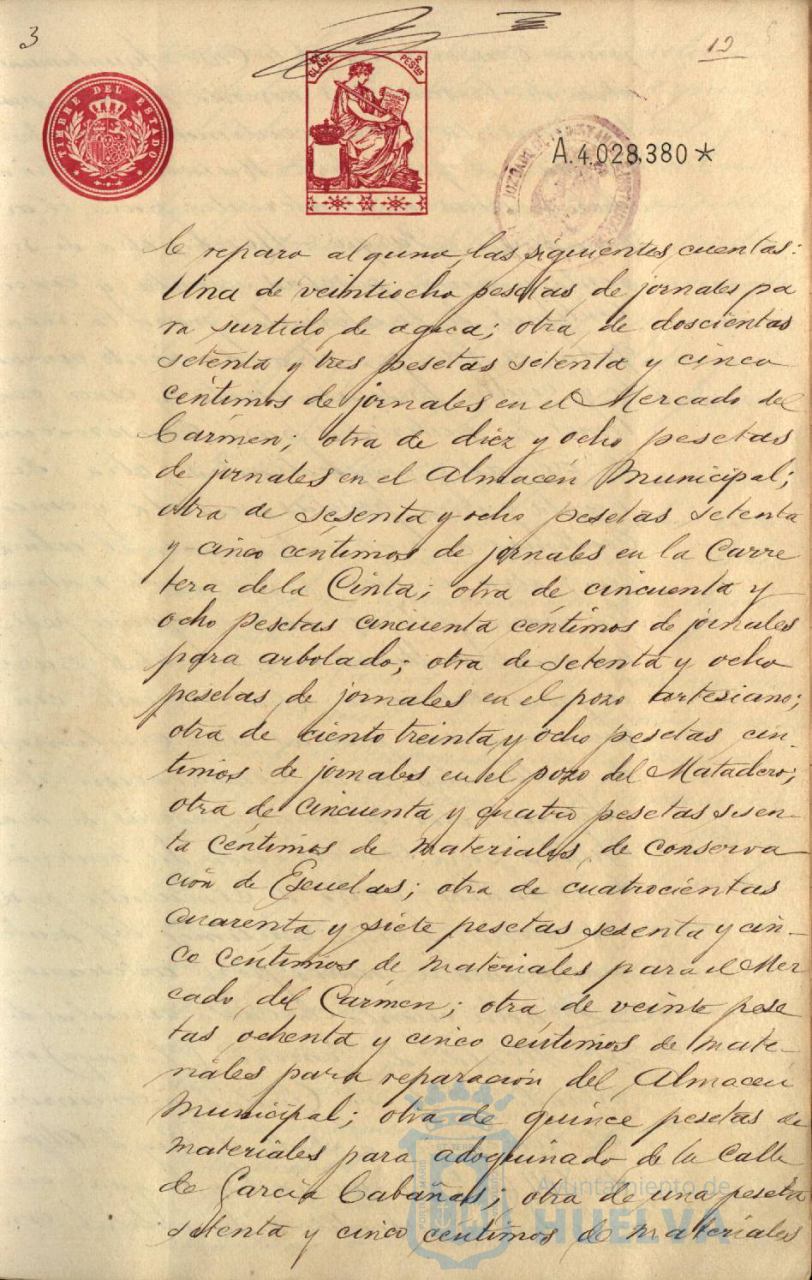 3
12
TIMBRE DEL ESTADO
CLASE
2 PESTAS
A.4.028,380 *
reparo alguno, las siguientes cuentas:
Una de veintiocho pesetas de jornales pa
ra surtido de agua; otra de doscientas
setenta y tres pesetas setenta y cinco
céntimos de jornales en el Mercado del
Cármen; otra de diez y ocho pesetas
de jornales en el Almacén Municipal;
otra de sesenta y ocho pesetas setenta
y cinco céntimos de jornales en la Carre
tera de la Cinta; otra de cincuenta y
ocho pesetas cincuenta céntimos de jornales
para arbolado; otra de setenta y ocho
pesetas de jornales en el pozo artesiano;
otra de ciento treinta y ocho pesetas cin-
timos de jornales en el pozo del Matadero;
otra de cincuenta y cuatro pesetas sesen-
ta céntimos de materiales de conserva
ción de Escuelas; otra de cuatrocientas
cuarenta y siete pesetas sesenta y cin-
co céntimos de materiales para el Mer
cado del Cármen; otra de veinte pese
tas ochenta y cinco céntimos de mate-
riales para reparación del Almacén
Municipal; otra de quince pesetas de
materiales para adoquinado de la Calle
de García Cabañas; otra de una peseta
setenta y cinco centimos de materiales
Ayuntamiento de
HUELVA